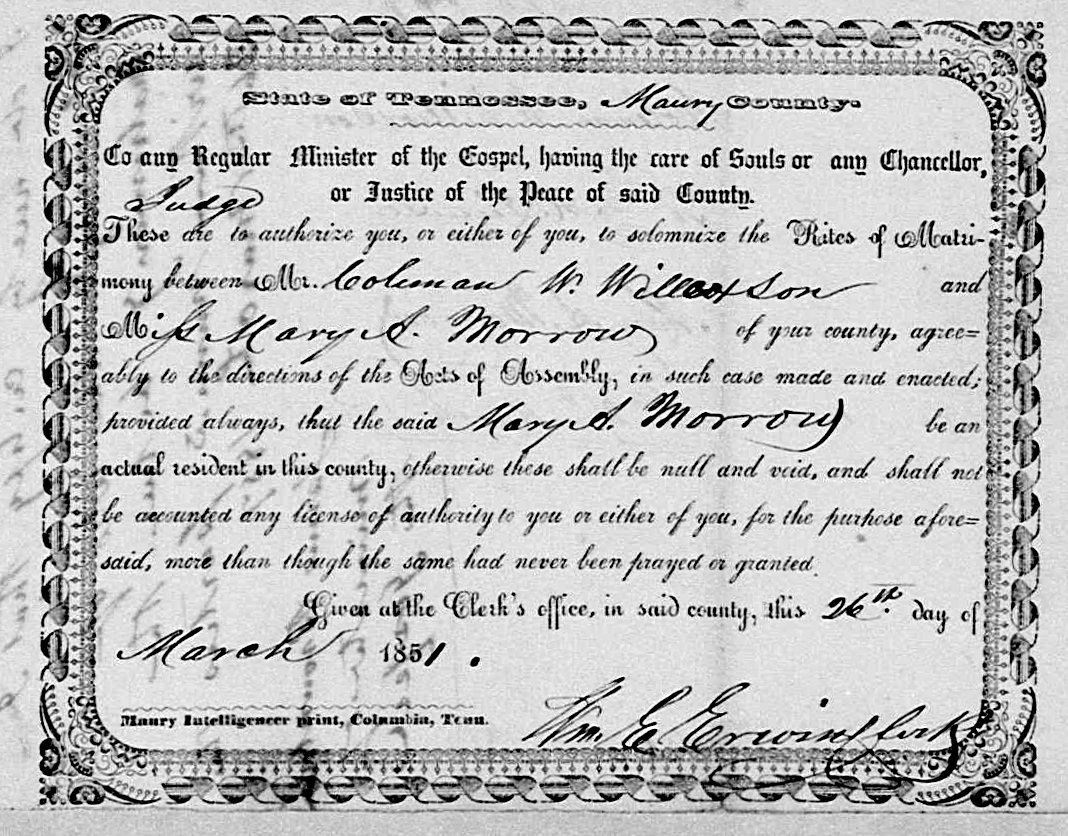 State of Tennessee, Maury County.
To any Regular Minister of the Gospel, having the care of Souls or any Chancellor,
Judge or Justice of the Peace of said County.
These are to authorize you, or either of you, to solomnize the Rites of Matri-
mony between Mr. Coleman W. Willcoxson and
Miss Mary A. Morrow of your county, agree=
ably to the directions of the Acts of Assembly, in such case made and enacted;
provided always, that the said Mary A. Morrow be an
actual resident in this county, otherwise these shall be null and void, and shall not
be accounted any license of authority to you or either of you, for the purpose afore=
said, more than though the same had never been prayed or granted.
Given at the Clerk's office, in said county, this 26th. day of
March 1851.
Maury Intelligencer print, Columbia, Tenn.
Wm E Erwin Clerk